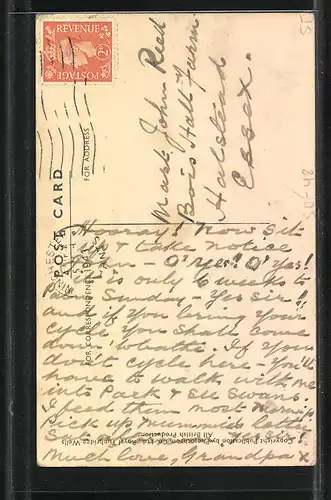 REVENUE
2D 2D
POSTAGE
POST CARD
FOR CORRESPONDENCE
FOR ADDRESS
Mast. John Reed
Bois Hall Farm
Halstead
Essex.
50-48
Hooray! Now Sit
up & take notice
- O' Yes! O' Yes!
it is only 6 weeks to
Palm Sunday - Yes Sir!
and if you bring your
cycle you shall come
down. If you
don't cycle here - you'll
have to walk with me
into Park & see Swans.
& feed them most
Pick up Mummie's letter
Much love, Grandpa x
Copyright Publication by Royal Tunbridge Wells
All British Production